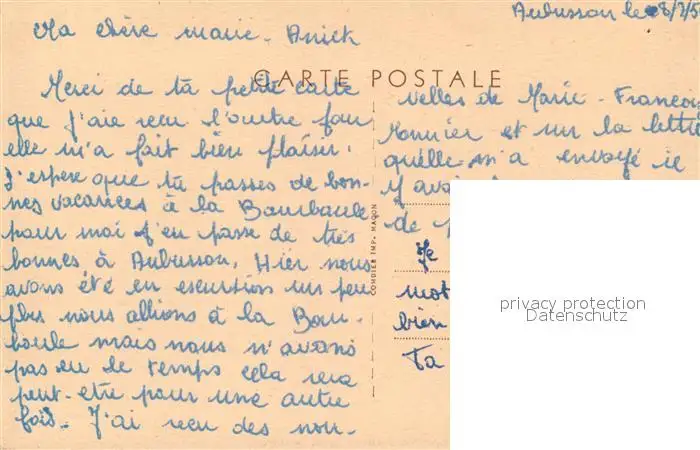 Aubusson le 8/7/5
Ma chère Marie-Anick
CARTE POSTALE
Merci de ta petite carte
que j'aie recu l'autre jour
elle m'a fait bien plaisir.
J'espere que tu passes de bon-
nes vacances à la Bourboule
pour moi j'en passe de très
bonnes à Aubusson. Hier nous
avons été en escursion un peu
plus nous allions à la Bour-
boule mais nous n'avons
pas eu le temps cela sera
peut-etre pour une autre
fois. J'ai recu des nou-
velles de Marie-Françoise
Monnier et sur la lettre
quelle m'a envoyé ie
y avai
de
Je
mot
bien
Ta
COMBIER IMP. MACON
privacy protection
Datenschutz